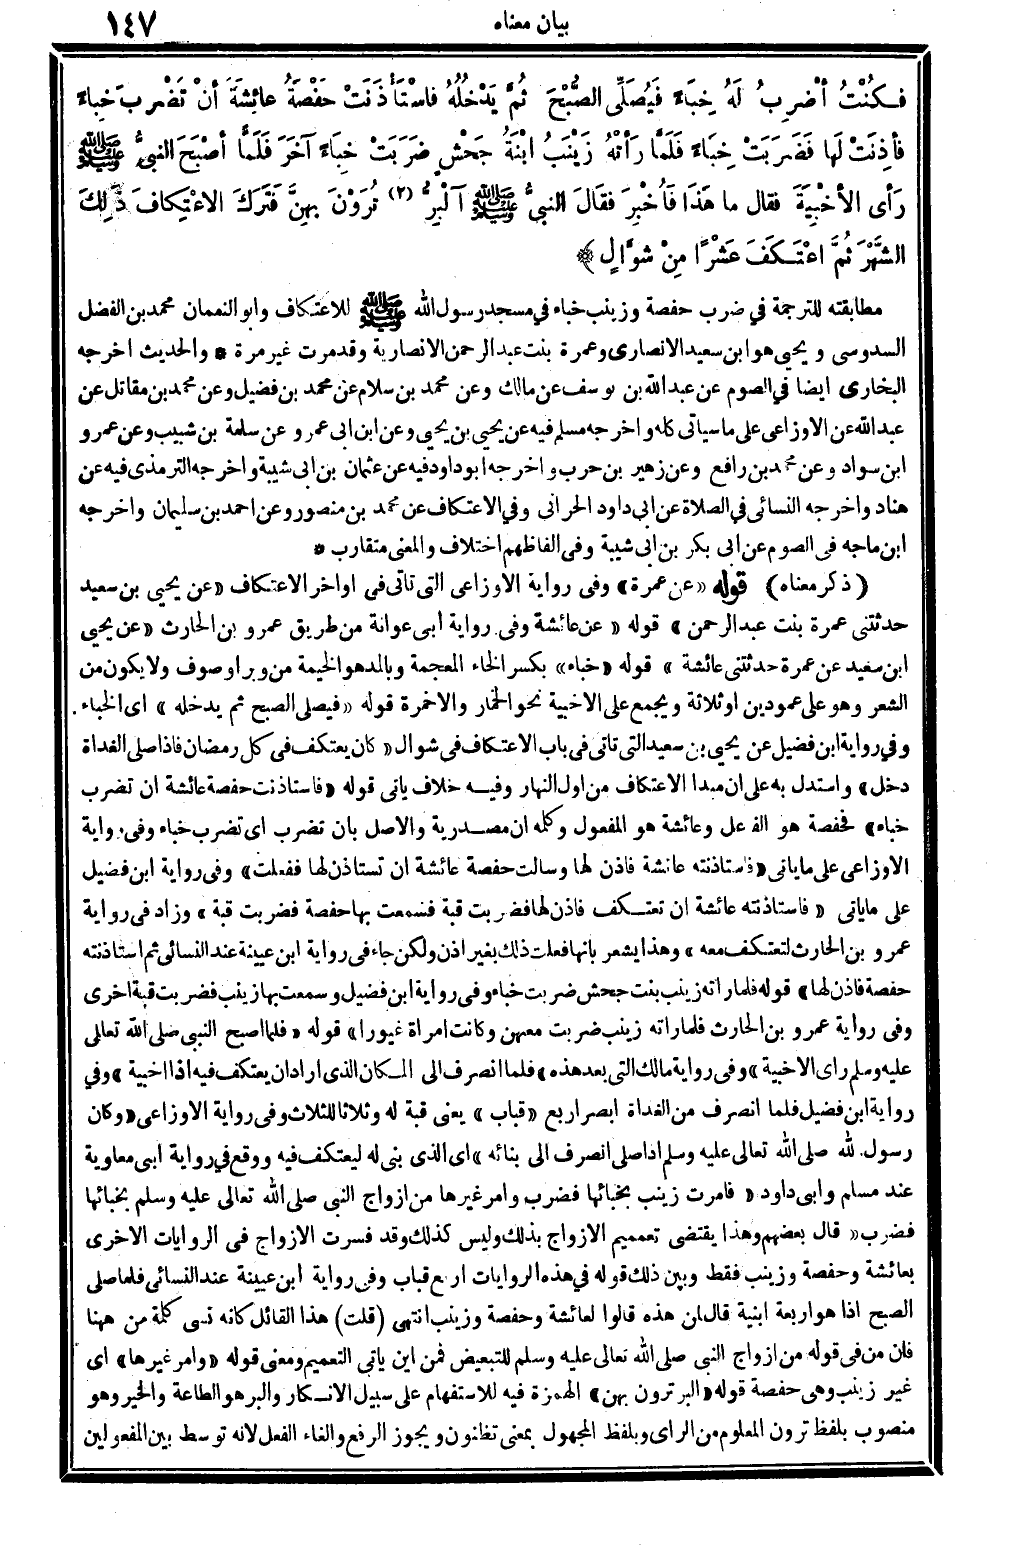 بيان معناه ١٤٧
فَكُنْتُ أَضْرِبُ لَهُ خِبَاءً فَيُصَلِّي الصُّبْحَ ثُمَّ يَدْخُلُهُ فَاسْتَأْذَنَتْ حَفْصَةُ عَائِشَةَ أَنْ تَضْرِبَ خِبَاءً
فَأَذِنَتْ لَهَا فَضَرَبَتْ خِبَاءً فَلَمَّا رَأَتْهُ زَيْنَبُ ابْنَةُ جَحْشٍ ضَرَبَتْ خِبَاءً آخَرَ فَلَمَّا أَصْبَحَ النبيُّ ﷺ
رَأَى الأَخْبِيَةَ فقال ما هَذَا فَأُخْبِرَ فقَالَ النبيُّ ﷺ آلْبِرَّ (٢) تُرَوْنَ بِهِنَّ فَتَرَكَ الاعْتِكَافَ ذَلِكَ
الشَّهْرَ ثُمَّ اعْتَكَفَ عَشْرًا مِنْ شوَّالٍ ﴾
مطابقته للترجمة في ضرب حفصة وزينب خباء في مسجد رسول الله ﷺ للاعتكاف وابو النعمان محمد بن الفضل
السدوسى ويحيى هو ابن سعيد الانصارى وعمرة بنت عبد الرحمن الانصارية وقد مرت غير مرة * والحديث اخرجه
البخارى ايضا في الصوم عن عبد الله بن يوسف عن مالك وعن محمد بن سلام عن محمد بن فضيل وعن محمد بن مقاتل عن
عبد الله عن الاوزاعى على ما سياتى كله واخرجه مسلم فيه عن يحيى بن يحيى وعن ابن ابى عمر و عن سلمة بن شبيب وعن عمرو
ابن سواد وعن محمد بن رافع وعن زهير بن حرب واخرجه ابو داود فيه عن عثمان بن ابى شيبة واخرجه الترمذى فيه عن
هناد واخرجه النسائى في الصلاة عن ابى داود الحرانى وفي الاعتكاف عن محمد بن منصور وعن احمد بن سليمان واخرجه
ابن ماجه فى الصوم عن ابى بكر بن ابى شيبة وفى الفاظهم اختلاف والمعنى متقارب *
(ذكر معناه) قوله «عن عمرة» وفى رواية الاوزاعى التى تاتى فى اواخر الاعتكاف «عن يحيى بن سعيد
حدثتنى عمرة بنت عبد الرحمن» قوله «عن عائشة وفى رواية أبى عوانة من طريق عمرو بن الحارث «عن يحيى
ابن سعيد عن عمرة حدثتنى عائشة» قوله «خباء» بكسر الخاء المعجمة وبالمد هو الخيمة من وبر او صوف ولا يكون من
الشعر وهو على عمودين او ثلاثة ويجمع على الاخبية نحو الخمار والاخمرة قوله «فيصلى الصبح ثم يدخله» اى الخباء.
وفى رواية ابن فضيل عن يحيى بن سعيد التى تاتى فى باب الاعتكاف فى شوال «كان يعتكف فى كل رمضان فاذا صلى الغداة
دخل» واستدل به على ان مبدا الاعتكاف من اول النهار وفيه خلاف ياتى قوله «فاستاذنت حفصة عائشة ان تضرب
خباء» فحفصة هو الفاعل وعائشة هو المفعول وكلمة ان مصدرية والاصل بان تضرب اى تضرب خباء وفى رواية
الاوزاعى على ما ياتى «فاستاذنته عائشة فاذن لها وسالت حفصة عائشة ان تستاذن لها ففعلت» وفى رواية ابن فضيل
على ماياتى «فاستاذنته عائشة ان تعتكف فاذن لها فضربت قبة فسمعت بها حفصة فضربت قبة» وزاد فى رواية
عمرو بن الحارث لتعتكف معه» وهذا يشعر بانها فعلت ذلك بغير اذن ولكن جاء فى رواية ابن عيينة عند النسائى ثم استاذنته
حفصة فاذن لها» قوله فلما راته زينب بنت جحش ضربت خباء وفى رواية ابن فضيل وسمعت بها زينب فضربت قبة اخرى
وفى رواية عمرو بن الحارث فلما راته زينب ضربت معهن وكانت امراة غيورا» قوله «فلما اصبح النبي صلى الله تعالى
عليه وسلم راى الاخبية» وفى رواية مالك التى بعد هذه» فلما انصرف الى المكان الذى اراد ان يعتكف فيه اذا اخبية» وفي
رواية ابن فضيل فلما انصرف من الغداة ابصر اربع «قباب» يعنى قبة له وثلاثا للثلاث وفى رواية الاوزاعى «وكان
رسول الله صلى الله تعالى عليه وسلم اذا صلى انصرف الى بنائه» اى الذى بنى له ليعتكف فيه ووقع في رواية ابى معاوية
عند مسلم وابى داود «فامرت زينب بخبائها فضرب وامر غيرها من ازواج النبى صلى الله تعالى عليه وسلم بخبائها
فضرب» قال بعضهم وهذا يقتضى تعميم الازواج بذلك وليس كذلك وقد فسرت الازواج فى الروايات الاخرى
بعائشة وحفصة وزينب فقط وبين ذلك قوله في هذه الروايات اربع قباب وفى رواية ابن عيينة عند النسائى فلما صلى
الصبح اذا هو اربعة ابنية قال لمن هذه قالوا لعائشة وحفصة وزينب انتهى (قلت) هذا القائل كانه نسى كلمة من ههنا
فان من فى قوله من ازواج النبى صلى الله تعالى عليه وسلم للتبعيض فمن اين ياتى التعميم ومعنى قوله «وامر غيرها» اى
غير زينب وهى حفصة قوله «البر ترون بهن» الهمزة فيه للاستفهام على سبيل الانكار والبر هو الطاعة والخير وهو
منصوب بلفظ ترون المعلوم من الراى وبلفظ المجهول بمعنى تظنون ويجوز الرفع والغاء الفعل لانه توسط بين المفعولين